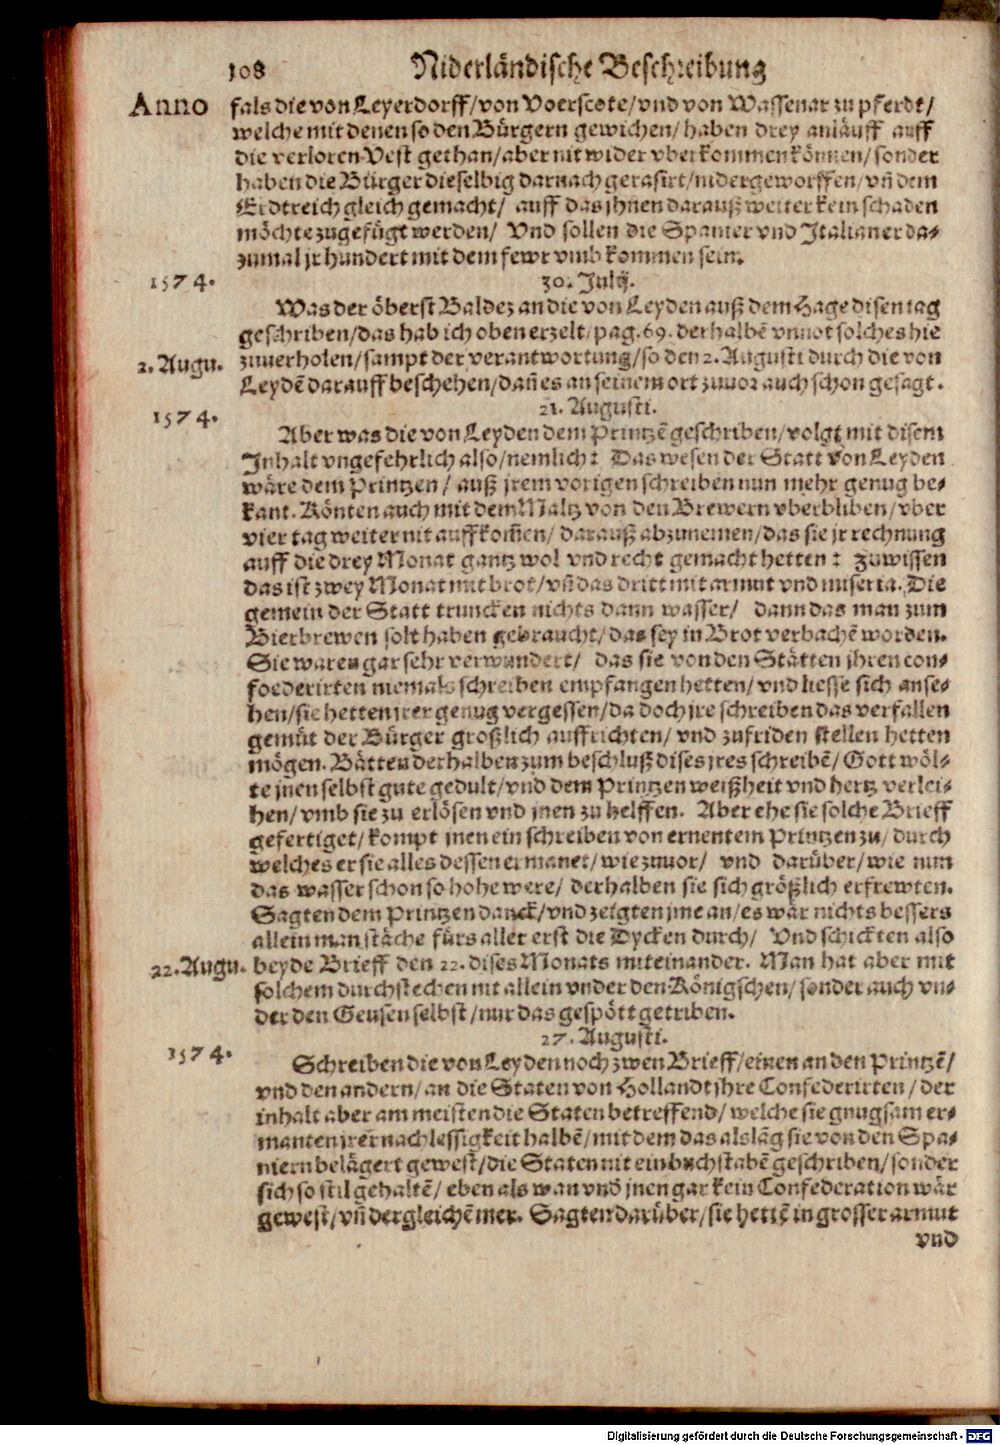 108 Niderländische Beschreibung
Anno fals die von Leyerdorff/ von Voerscote/ vnd von Wassenar zu pferdt/
welche mit denen so den Bürgern gewichen/ haben drey anläuff auff
die verloren Vest gethan/ aber nit wider vberkommen können/ sonder
haben die Bürger dieselbig darnach gerasirt/ nidergeworffen/ vñ dem
Erdtreich gleich gemacht/ auff das jhnen darauß weiter kein schaden
möchte zugefügt werden/ Vnd sollen die Spanier vnd Italianer da-
zumal jr hundert mit dem fewr vmbkommen sein.
1574. 30. Julij.
Was der öberst Baldez an die von Leyden auß dem Hage disen tag
geschriben/ das hab ich oben erzelt/ pag. 69. derhalbē vnnot solches hie
2. Augu. zuuerholen/ sampt der verantwortung/ so den 2. Augusti durch die von
Leydē darauff beschehen/ dañ es an seinem ort zuuor auch schon gesagt.
1574. 21. Augusti.
Aber was die von Leyden dem Printzē geschriben/ volgt mit disem
Inhalt vngefehrlich also/ nemlich: Das wesen der Statt von Leyden
wäre dem Printzen/ auß jrem vorigen schreiben nun mehr genug be-
kant. Könten auch mit dem Maltz von den Brewern vberbliben/ vber
vier tag weiter nit auffkom̄en/ darauß abzunemen/ das sie jr rechnung
auff die drey Monat gantz wol vnd recht gemacht hetten: zuwissen
das ist zwey Monat mit brot/ vñ das dritt mit armut vnd miseria. Die
gemein der Statt truncken nichts dann wasser/ dann das man zum
Bierbrewen solt haben gebraucht/ das sey in Brot verbachē worden.
Sie waren gar sehr verwundert/ das sie von den Stätten jhren con-
foederirten niemals schreiben empfangen hetten/ vnd liesse sich anse-
hen/ sie hetten jrer genug vergessen/ da doch jre schreiben das verfallen
gemüt der Bürger großlich auffrichten/ vnd zufriden stellen hetten
mögen. Bätten derhalben zum beschluß dises jres schreibē/ Gott wöl-
te jnen selbst gute gedult/ vnd dem Printzen weißheit vnd hertz verlei-
hen/ vmb sie zu erlösen vnd jnen zu helffen. Aber ehe sie solche Brieff
gefertiget/ kompt jnen ein schreiben von ernentem Printzen zu/ durch
welches er sie alles dessen ermanet/ wie zuuor/ vnd darüber/ wie nun
das wasser schon so hohe were/ derhalben sie sich größlich erfrewten.
Sagten dem Printzen danck/ vnd zeigten jme an/ es wär nichts bessers
allein man stäche fürs aller erst die Dycken durch/ Vnd schickten also
22. Augu. beyde Brieff den 22. dises Monats miteinander. Man hat aber mit
solchem durchstechen nit allein vnder den Königschen/ sonder auch vn-
der den Geusen selbst/ nur das gespött getriben.
27. Augusti.
1574. Schreiben die von Leyden noch zwen Brieff/ einen an den Printzē/
vnd den andern/ an die Staten von Hollandt jhre Confederirten/ der
inhalt aber am meisten die Staten betreffend/ welche sie gnugsam er-
manten jrer nachlessigkeit halbē/ mit dem das alslāg sie von den Spa-
niern belägert gewest/ die Staten nit ein buchstabē geschriben/ sonder
sich so stil gehaltē/ eben als wan vnd jnen gar kein Confederation wär
gewest/ vñ dergleichē mer. Sagten darüber/ sie hettē in grosser armut
vnd
Digitalisierung gefördert durch die Deutsche Forschungsgemeinschaft - DFG